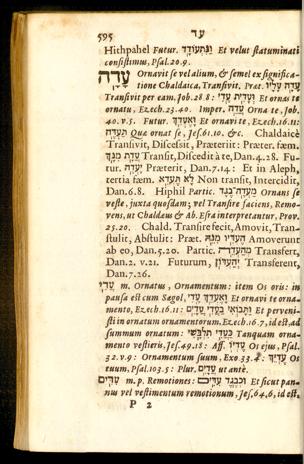 595 עד
Hithpahel Futur. וַנִּתְעוֹדָד Et velut statuminati
consistimus, Psal. 20. 9.
עָדָה Ornavit se vel alium, & semel ex significa-
tione Chaldaica, Transivit. Præt. עָדָה עָלָיו
Transivit per eam, Job. 28. 8: וְעָדִית עֶדְיֵךְ Et ornas te
ornatu, Ezech. 23. 40. Imper. עֲדֵה Orna te Job,
40. v. 5. Futur. וָאֶעְדֵּךְ Et ornavi te, Ezech. 16. 11:
תַּעְדֶּה Qua ornat se, Jes. 61. 10. &c. Chaldaicè
Transivit, Discessit, Præteriit: Præter. fœm.
עֲדָת מִנָּךְ Transit, Discedit à te, Dan. 4. 28. Fu-
tur. יֶעְדֵּה Præterit, Dan. 7. 14: Et in Aleph,
tertia fœm. לָא תֶעְדֵּא Non transit, Intercidit,
Dan. 6. 8. Hiphil Partic. מַעֲדֶה־בֶּגֶד Ornans se
veste, juxta quosdam; vel Transire faciens, Remo-
vens, ut Chaldæus & Ab. Esra interpretantur, Prov.
25. 20. Chald. Transire fecit, Amovit, Tran-
stulit, Abstulit: Præt. הֶעְדִּיו מִנֵּהּ Amoverunt
ab eo, Dan. 5. 20. Partic. מְהַעְדֵּה Transfert,
Dan. 2. v. 21. Futurum, יְהַעְדּוֹן Transferent,
Dan. 7. 26.
עֲדִי m. Ornatus, Ornamentum: item Os oris: in
pausa est cum Sægol, וָאֶעְדֵּךְ עֶדִי Et ornavi te orna-
mento, Ezech. 16. 11: וַתָּבֹאִי בַּעֲדִי עֲדָיִים Et perveni-
sti in ornatum ornamentorum, Ezech. 16. 7, id est, ad
summum ornatum: כָּעֲדִי תִלְבָּשִׁי Tanquam orna-
mento vestieris, Jes. 49. 18: Aff. עֶדְיוֹ Os ejus, Psal.
32. v. 9: Ornamentum suum, Exo. 33. 4: עֶדְיֵךְ Os
tuum, Psal. 103. 5: Plur. עֲדָיִים ut antè.
עִדִּים m. p. Remotiones: וּכְבֶגֶד עִדִּים Et sicut pan-
nus vel vestimentum remotionum, Jes. 64, 6, id est,
P 2